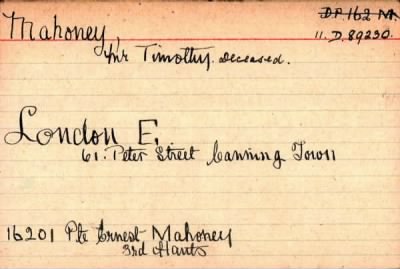 Mahoney,
D.P. 162 M.
11. D. 89230.
Mr Timothy. Deceased.
London E.
61. Peter Street Canning Town
16201 Pte Ernest Mahoney
3rd Hants